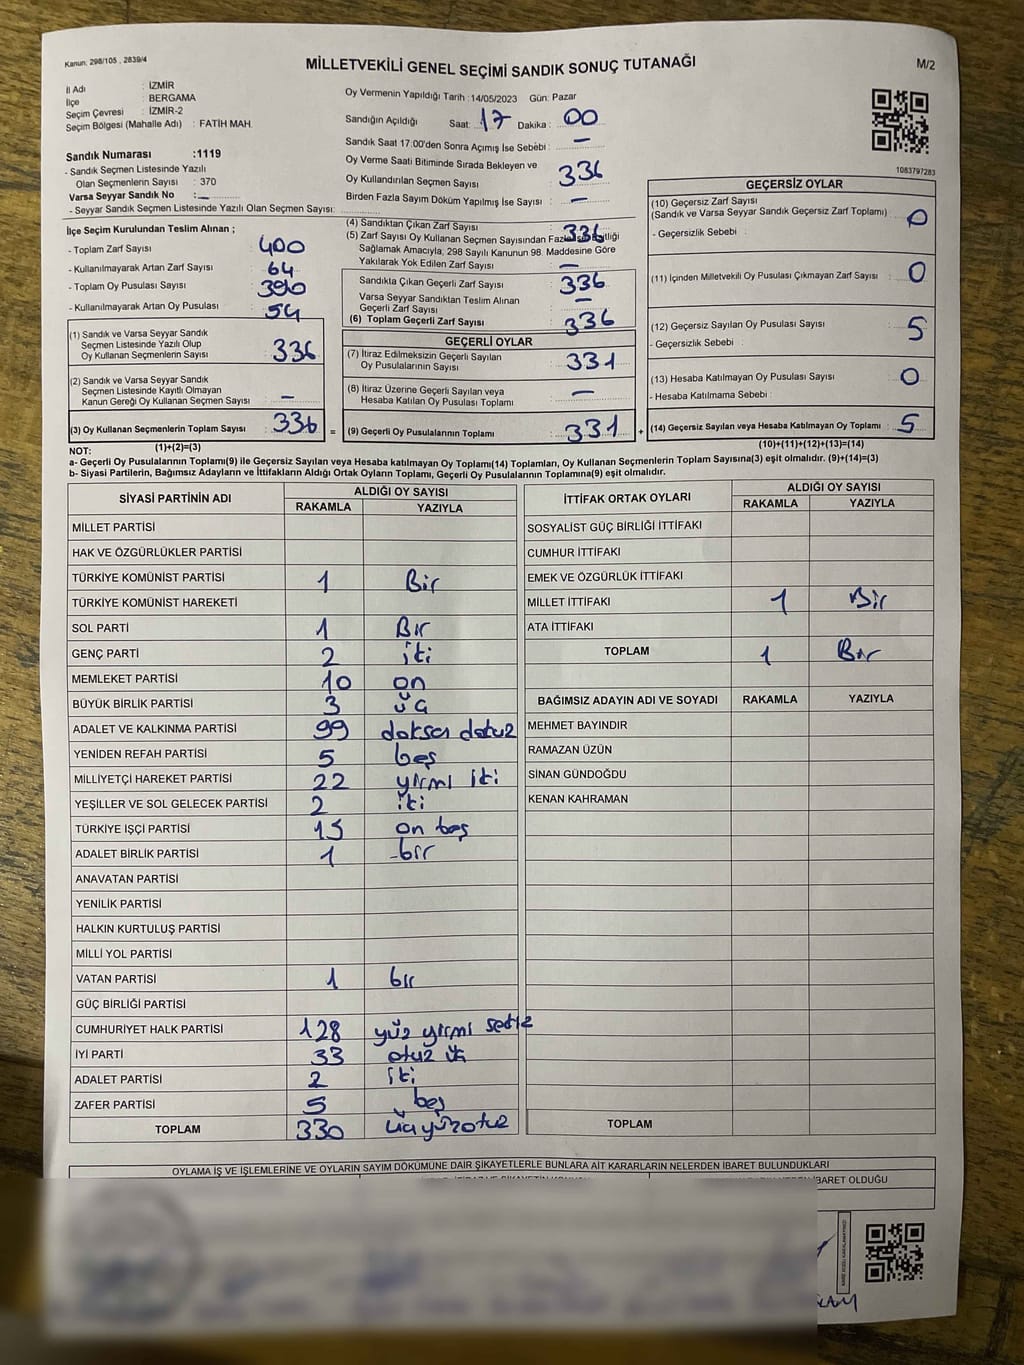 Kanun. 298/105 , 2839/4
MİLLETVEKİLİ GENEL SEÇİMİ SANDIK SONUÇ TUTANAĞI
M/2
İl Adı : İZMİR
İlçe : BERGAMA
Seçim Çevresi : İZMİR-2
Seçim Bölgesi (Mahalle Adı) : FATİH MAH.
Sandık Numarası :1119
- Sandık Seçmen Listesinde Yazılı
Olan Seçmenlerin Sayısı : 370
Varsa Seyyar Sandık No : -
- Seyyar Sandık Seçmen Listesinde Yazılı Olan Seçmen Sayısı:
Oy Vermenin Yapıldığı Tarih :14/05/2023 Gün: Pazar
Sandığın Açıldığı Saat: 17 Dakika : 00
Sandık Saat 17.00'den Sonra Açımış İse Sebebi : -
Oy Verme Saati Bitiminde Sırada Bekleyen ve
Oy Kullandırılan Seçmen Sayısı : 336
Birden Fazla Sayım Döküm Yapılmış İse Sayısı : -
1083797283
İlçe Seçim Kurulundan Teslim Alınan ;
- Toplam Zarf Sayısı : 400
- Kullanılmayarak Artan Zarf Sayısı : 64
- Toplam Oy Pusulası Sayısı : 390
- Kullanılmayarak Artan Oy Pusulası : 54
(1) Sandık ve Varsa Seyyar Sandık
Seçmen Listesinde Yazılı Olup
Oy Kullanan Seçmenlerin Sayısı : 336
(2) Sandık ve Varsa Seyyar Sandık
Seçmen Listesinde Kayıtlı Olmayan
Kanun Gereği Oy Kullanan Seçmen Sayısı : -
(3) Oy Kullanan Seçmenlerin Toplam Sayısı : 336 =
(1)+(2)=(3)
(4) Sandıktan Çıkan Zarf Sayısı : 336
(5) Zarf Sayısı Oy Kullanan Seçmen Sayısından Fazla ise Eşitliği
Sağlamak Amacıyla, 298 Sayılı Kanunun 98. Maddesine Göre
Yakılarak Yok Edilen Zarf Sayısı : -
Sandıkta Çıkan Geçerli Zarf Sayısı : 336
Varsa Seyyar Sandıktan Teslim Alınan
Geçerli Zarf Sayısı : -
(6) Toplam Geçerli Zarf Sayısı : 336
GEÇERLİ OYLAR
(7) İtiraz Edilmeksizin Geçerli Sayılan
Oy Pusulalarının Sayısı : 331
(8) İtiraz Üzerine Geçerli Sayılan veya
Hesaba Katılan Oy Pusulası Toplamı : -
(9) Geçerli Oy Pusulalarının Toplamı : 331 +
GEÇERSİZ OYLAR
(10) Geçersiz Zarf Sayısı
(Sandık ve Varsa Seyyar Sandık Geçersiz Zarf Toplamı) : 0
- Geçersizlik Sebebi :
(11) İçinden Milletvekili Oy Pusulası Çıkmayan Zarf Sayısı : 0
(12) Geçersiz Sayılan Oy Pusulası Sayısı : 5
- Geçersizlik Sebebi :
(13) Hesaba Katılmayan Oy Pusulası Sayısı : 0
- Hesaba Katılmama Sebebi :
(14) Geçersiz Sayılan veya Hesaba Katılmayan Oy Toplamı : 5
(10)+(11)+(12)+(13)=(14)
NOT:
a- Geçerli Oy Pusulalarının Toplamı(9) ile Geçersiz Sayılan veya Hesaba katılmayan Oy Toplamı(14) Toplamları, Oy Kullanan Seçmenlerin Toplam Sayısına(3) eşit olmalıdır. (9)+(14)=(3)
b- Siyasi Partilerin, Bağımsız Adayların ve İttifakların Aldığı Ortak Oyların Toplamı, Geçerli Oy Pusulalarının Toplamına(9) eşit olmalıdır.
SİYASİ PARTİNİN ADI ALDIĞI OY SAYISI
RAKAMLA YAZIYLA
MİLLET PARTİSİ
HAK VE ÖZGÜRLÜKLER PARTİSİ
TÜRKİYE KOMÜNİST PARTİSİ 1 Bir
TÜRKİYE KOMÜNİST HAREKETİ
SOL PARTİ 1 Bir
GENÇ PARTİ 2 iki
MEMLEKET PARTİSİ 10 on
BÜYÜK BİRLİK PARTİSİ 3 üç
ADALET VE KALKINMA PARTİSİ 99 doksan dokuz
YENİDEN REFAH PARTİSİ 5 beş
MİLLİYETÇİ HAREKET PARTİSİ 22 yirmi iki
YEŞİLLER VE SOL GELECEK PARTİSİ 2 iki
TÜRKİYE İŞÇİ PARTİSİ 15 on beş
ADALET BİRLİK PARTİSİ 1 bir
ANAVATAN PARTİSİ
YENİLİK PARTİSİ
HALKIN KURTULUŞ PARTİSİ
MİLLİ YOL PARTİSİ
VATAN PARTİSİ 1 bir
GÜÇ BİRLİĞİ PARTİSİ
CUMHURİYET HALK PARTİSİ 128 yüz yirmi sekiz
İYİ PARTİ 33 otuz üç
ADALET PARTİSİ 2 iki
ZAFER PARTİSİ 5 beş
TOPLAM 330 üçyüzotuz
İTTİFAK ORTAK OYLARI ALDIĞI OY SAYISI
RAKAMLA YAZIYLA
SOSYALİST GÜÇ BİRLİĞİ İTTİFAKI
CUMHUR İTTİFAKI
EMEK VE ÖZGÜRLÜK İTTİFAKI
MİLLET İTTİFAKI 1 Bir
ATA İTTİFAKI
TOPLAM 1 Bir
BAĞIMSIZ ADAYIN ADI VE SOYADI RAKAMLA YAZIYLA
MEHMET BAYINDIR
RAMAZAN ÜZÜN
SİNAN GÜNDOĞDU
KENAN KAHRAMAN
TOPLAM
OYLAMA İŞ VE İŞLEMLERİNE VE OYLARIN SAYIM DÖKÜMÜNE DAİR ŞİKAYETLERLE BUNLARA AİT KARARLARIN NELERDEN İBARET BULUNDUKLARI
İBARET OLDUĞU